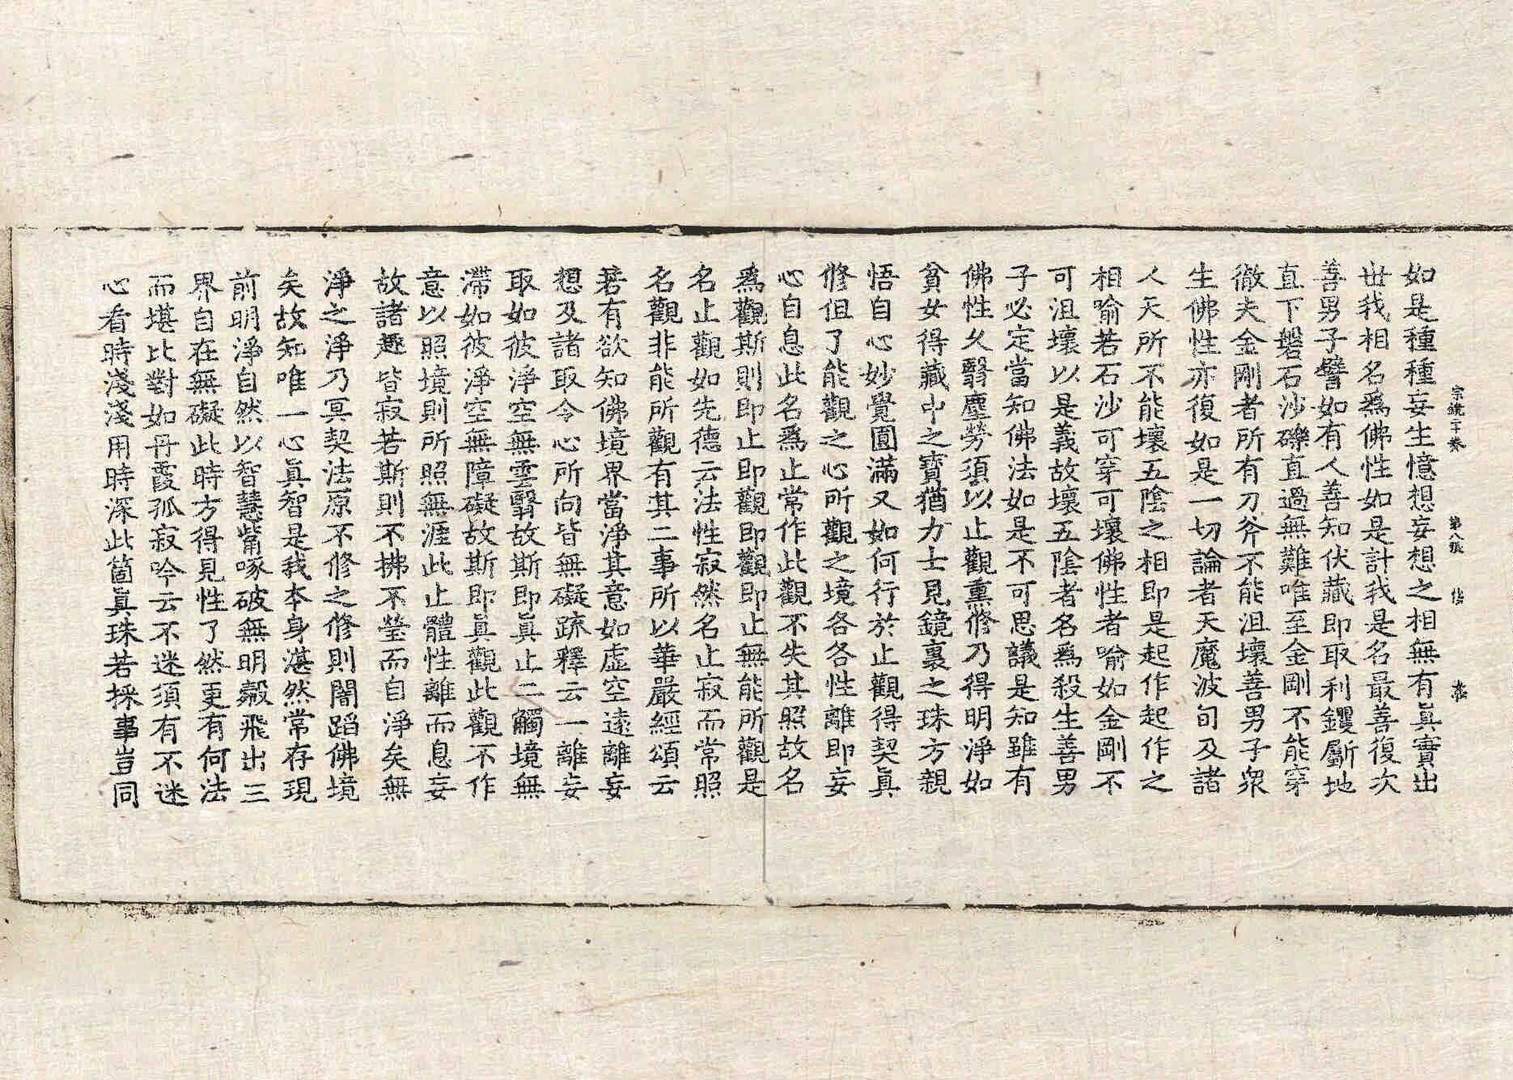 宗鏡二十卷 第八張
如是種種妄生憶想妄想之相無有眞實出
世我相名爲佛性如是計我是名最善復次
善男子譬如有人善知伏藏即取利钁斸地
直下磐石沙礫直過無難唯至金剛不能穿
徹夫金剛者所有刀斧不能沮壞善男子衆
生佛性亦復如是一切論者天魔波旬及諸
人天所不能壞五陰之相即是起作起作之
相喻若石沙可穿可壞佛性者喻如金剛不
可沮壞以是義故壞五陰者名爲殺生善男
子必定當知佛法如是不可思議是知雖有
佛性久翳塵勞須以止觀熏修乃得明淨如
貧女得藏中之寶猶力士見鏡裏之珠方親
悟自心妙覺圓滿又如何行於止觀得契眞
修但了能觀之心所觀之境各各性離即妄
心自息此名爲止常作此觀不失其照故名
爲觀斯則即止即觀即觀即止無能所觀是
名止觀如先德云法性寂然名止寂而常照
名觀非能所觀有其二事所以華嚴經頌云
若有欲知佛境界當淨其意如虛空遠離妄
想及諸取令心所向皆無礙疏釋云一離妄
取如彼淨空無雲翳故斯即眞止二觸境無
滯如彼淨空無障礙故斯即眞觀此觀不作
意以照境則所照無涯此止體性離而息妄
故諸趣皆寂若斯則不拂不瑩而自淨矣無
淨之淨乃冥契法原不修之修則闇蹈佛境
矣故知唯一心眞智是我本身湛然常存現
前明淨自然以智慧觜啄破無明㲉飛出三
界自在無礙此時方得見性了然更有何法
而堪比對如丹霞孤寂吟云不迷須有不迷
心看時淺淺用時深此箇眞珠若採事豈同